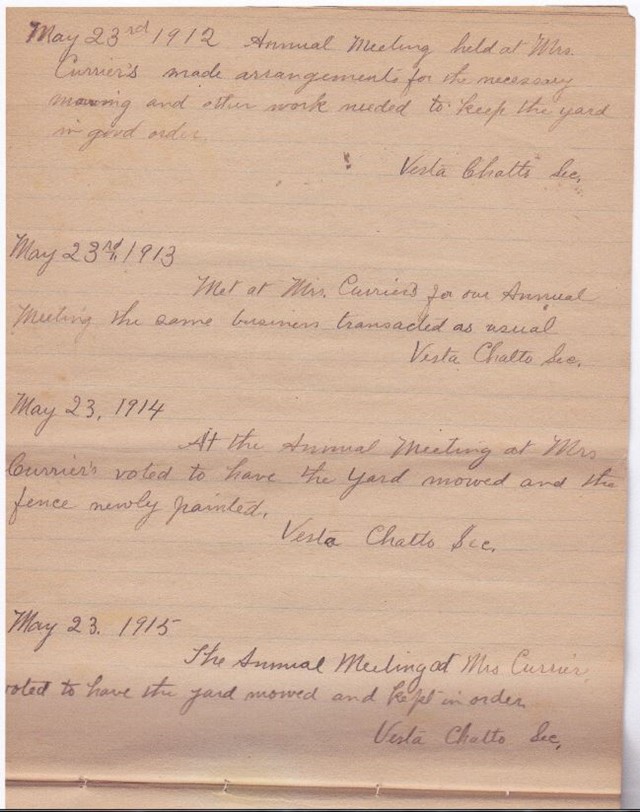 May 23rd 1912 Annual Meeting held at Mrs.
Currier's made arrangements for the necessary
mowing and other work needed to keep the yard
in good order.
Vesta Chatto Sec.
May 23rd, 1913
Met at Mrs. Currier's for our Annual
Meeting the same business transacted as usual
Vesta Chatto Sec.
May 23, 1914
At the Annual Meeting at Mrs
Currier's voted to have the yard mowed and the
fence newly painted.
Vesta Chatto Sec.
May 23. 1915
The Annual Meeting at Mrs Currier
voted to have the yard mowed and kept in order
Vesta Chatto Sec.